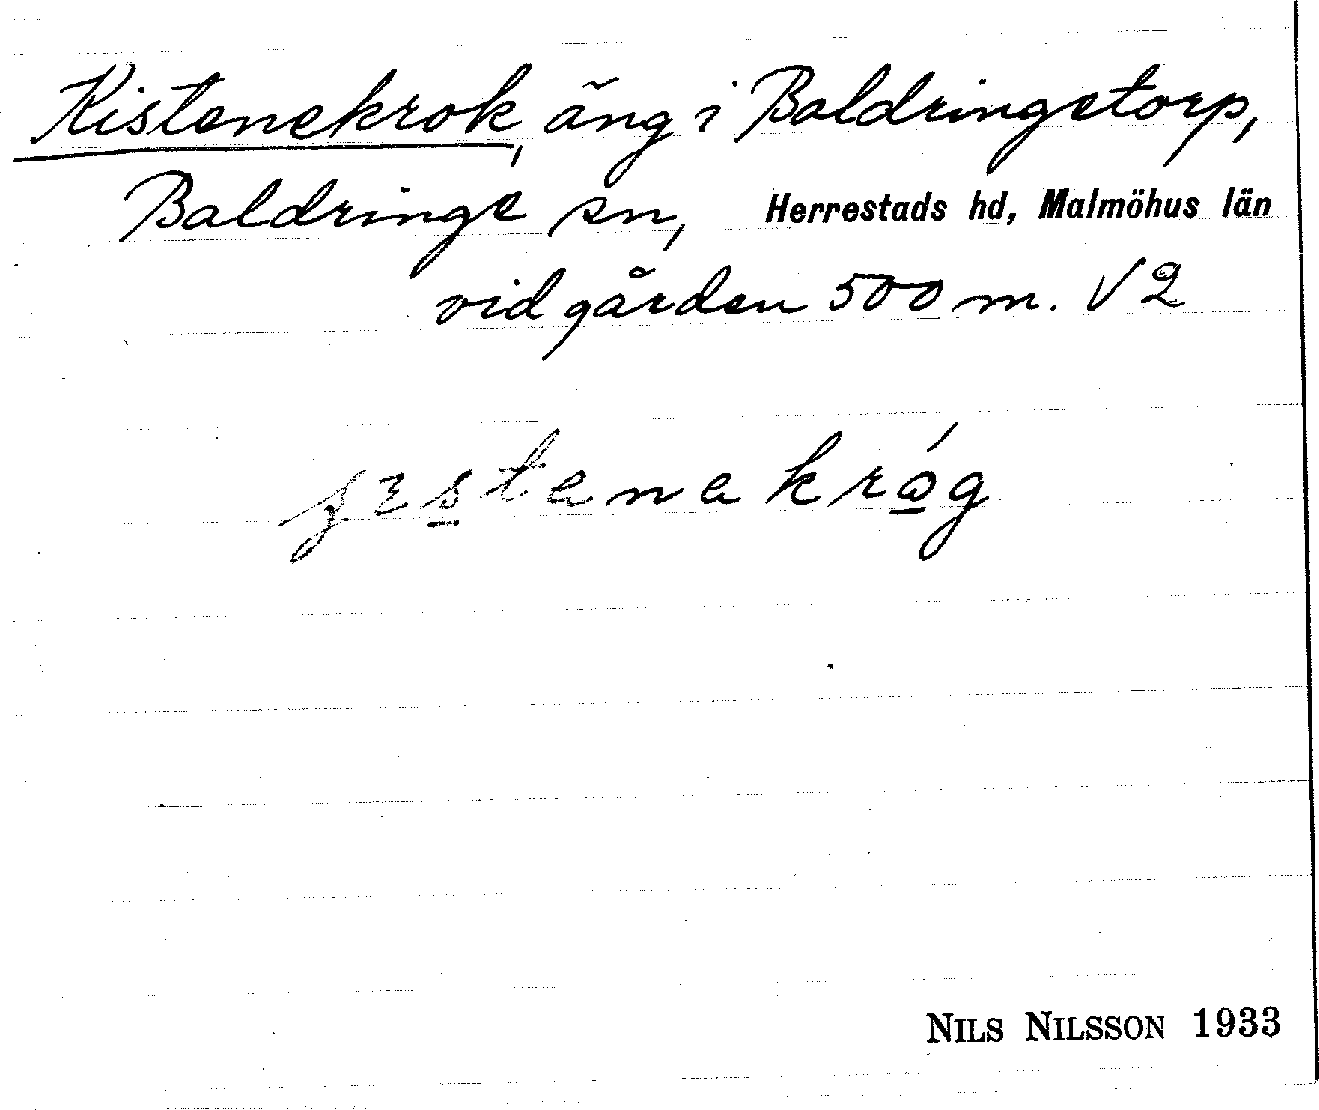 Kistenekrok, äng i Baldringetorp,
Baldringe sn, Herrestads hd, Malmöhus län
vid gården 500 m. V 2
NILS NILSSON 1933